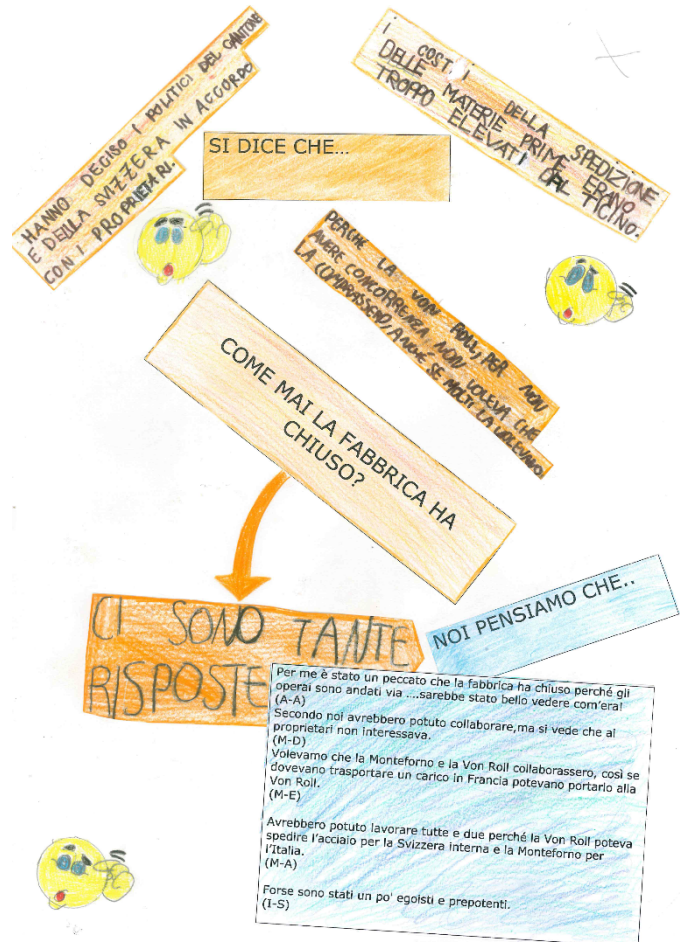 HANNO DECISO I POLITICI DEL CANTONE
E DELLA SVIZZERA IN ACCORDO
CON I PROPRIETARI.
I COSTI DELLA SPEDIZIONE
DELLE MATERIE PRIME ERANO
TROPPO ELEVATI DAL TICINO.
SI DICE CHE...
PERCHÉ LA VON ROLL, PER NON
AVERE CONCORRENZA, NON VOLEVA CHE
LA COMPRASSERO, ANCHE SE MOLTI LA VOLEVANO
COME MAI LA FABBRICA HA
CHIUSO?
CI SONO TANTE
RISPOSTE
NOI PENSIAMO CHE..
Per me è stato un peccato che la fabbrica ha chiuso perché gli
operai sono andati via ....sarebbe stato bello vedere com'era!
(A-A)
Secondo noi avrebbero potuto collaborare,ma si vede che ai
proprietari non interessava.
(M-D)
Volevamo che la Monteforno e la Von Roll collaborassero, così se
dovevano trasportare un carico in Francia potevano portarlo alla
Von Roll.
(M-E)
Avrebbero potuto lavorare tutte e due perché la Von Roll poteva
spedire l'acciaio per la Svizzera interna e la Monteforno per
l'Italia.
(M-A)
Forse sono stati un po' egoisti e prepotenti.
(I-S)